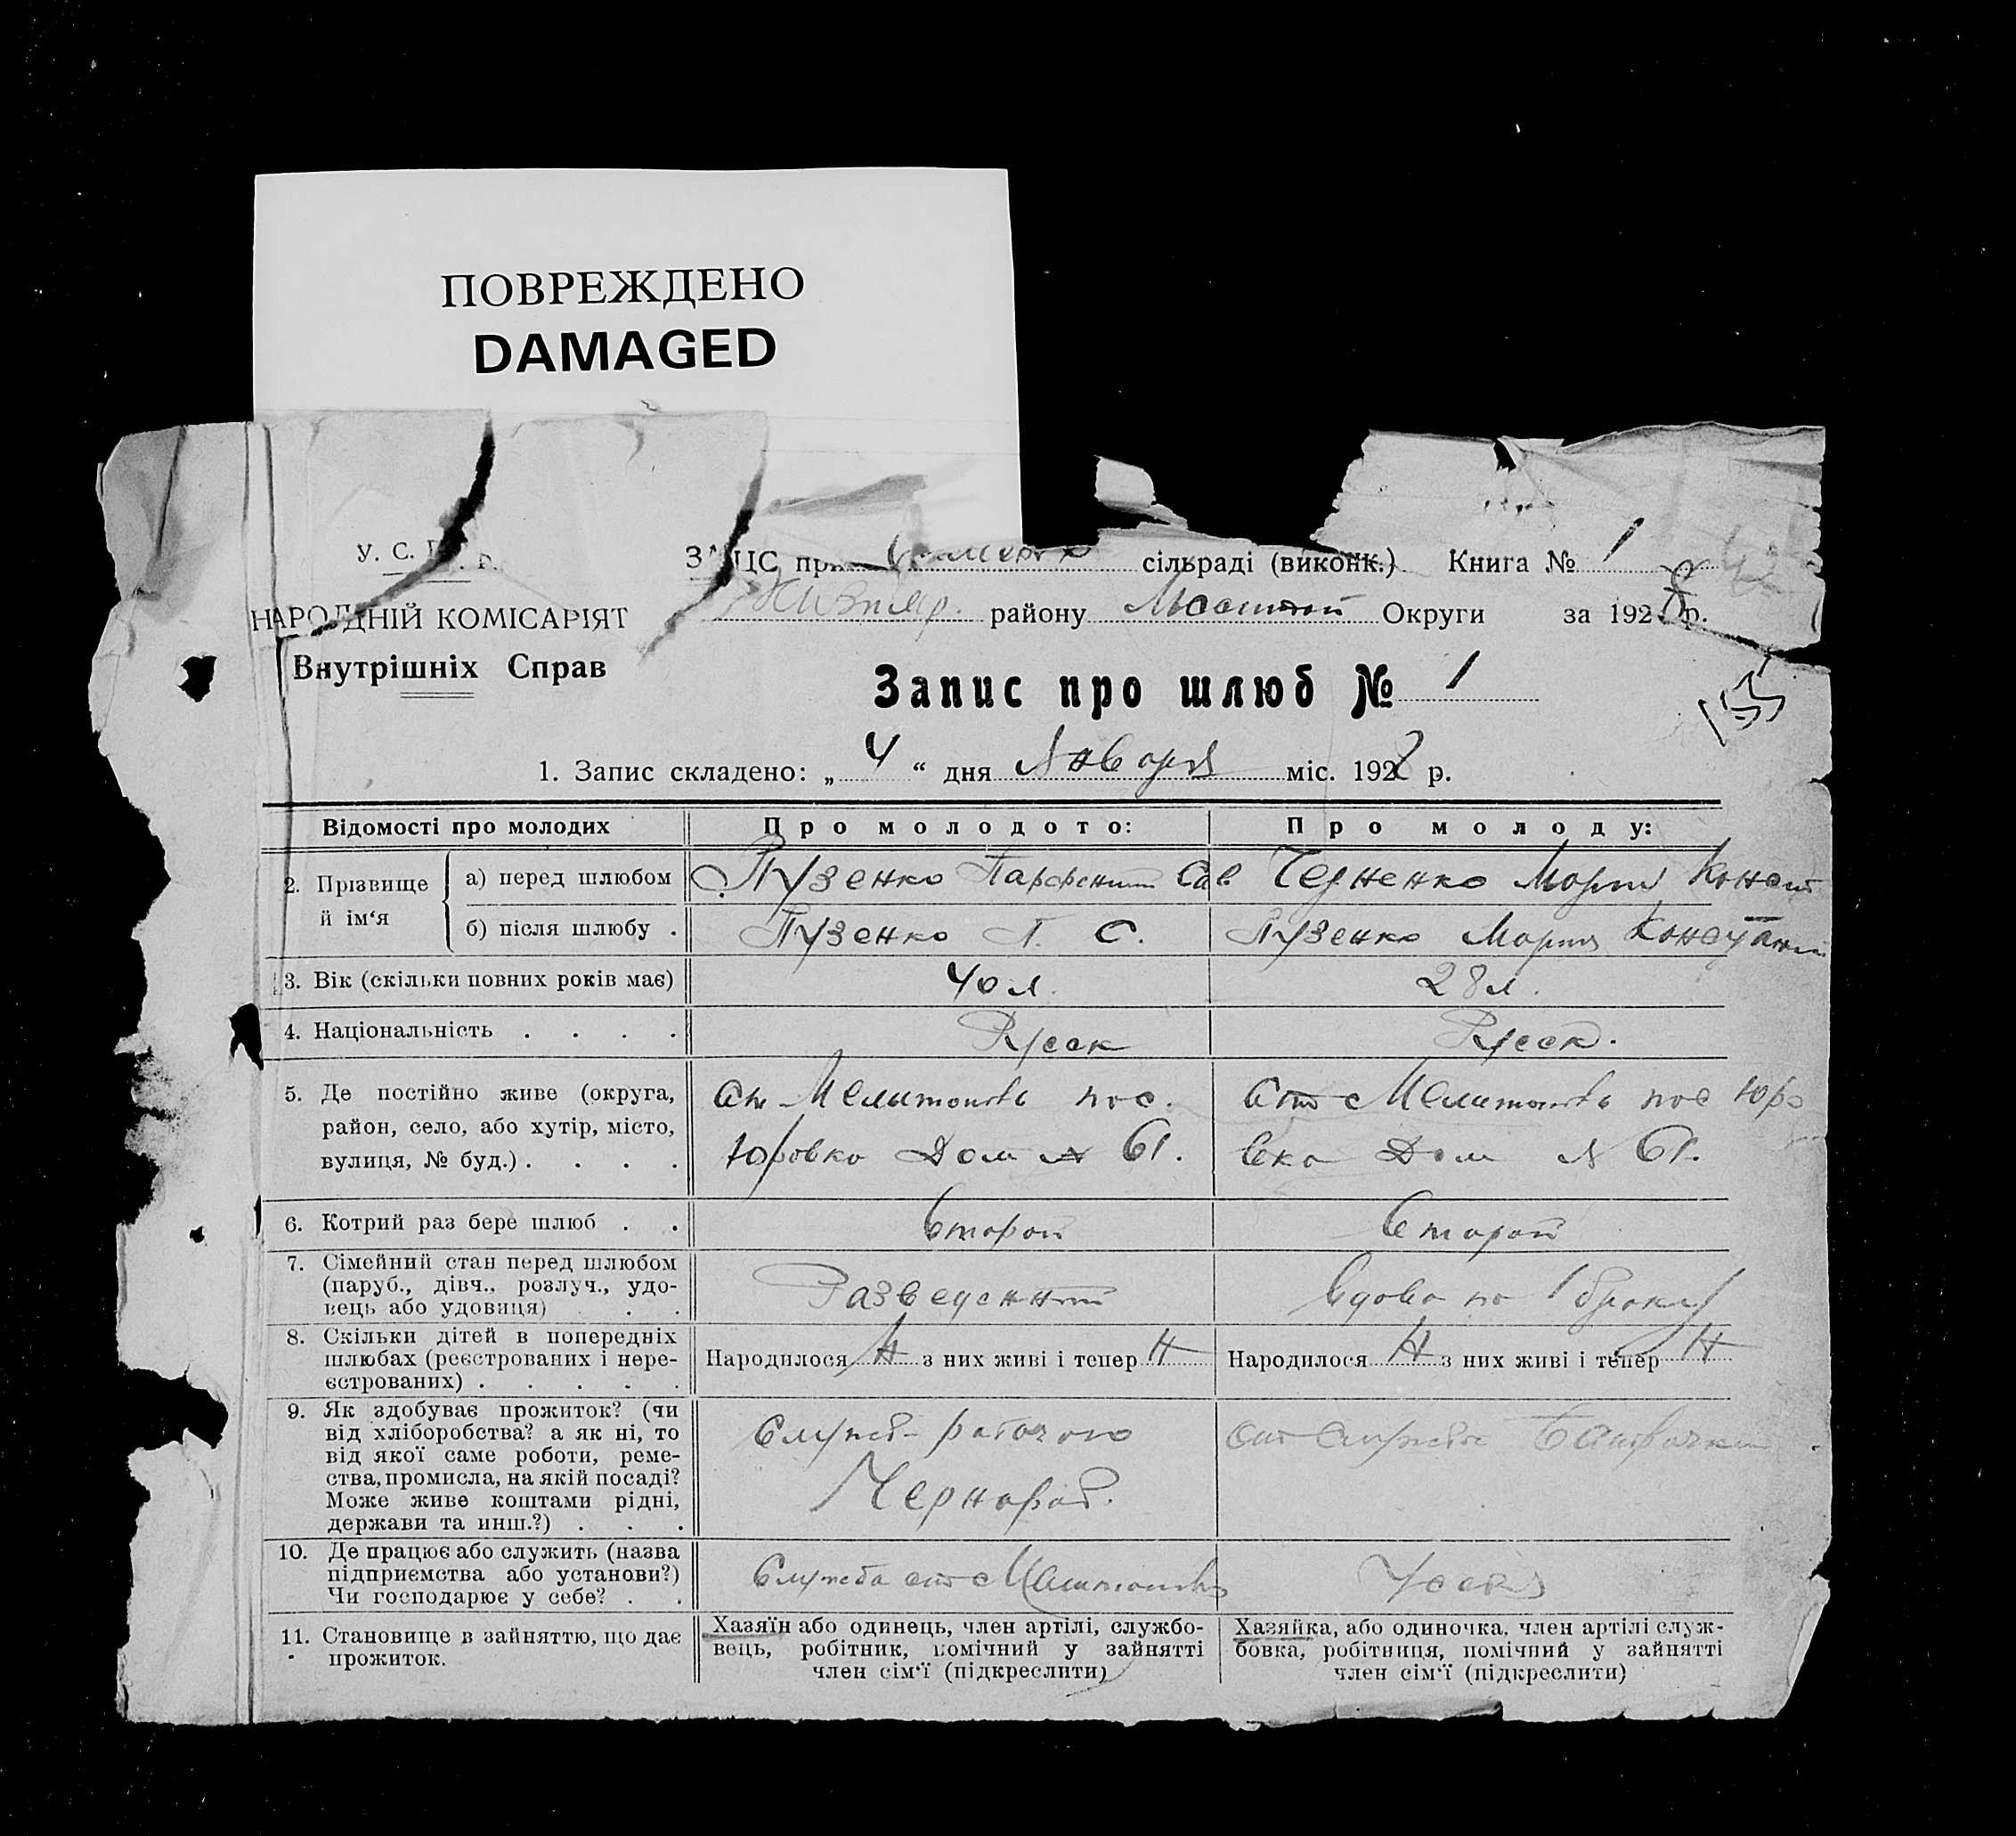 ПОВРЕЖДЕНО
DAMAGED
У. С.
ЗАЦС при сільраді (виконк.) Книга № 1
району Округи за 1928 р.
НАРОДНІЙ КОМІСАРІЯТ
Внутрішніх Справ
Запис про шлюб № 1
155
1. Запис складено: „ 4 “ дня Января міс. 1928 р.
Відомості про молодих Про молодого: Про молоду:
2. Прізвище й ім‘я
а) перед шлюбом Пузенко Парфений Сав Чедненко Мария Конст
б) після шлюбу . Пузенко П. С. Пузенко Мария
3. Вік (скільки повних років має) 40 л. 28 л.
4. Національність . . . . Русск Русск.
5. Де постійно живе (округа, район, село, або хутір, місто, вулиця, № буд.) . . . .
пос.
Юровко Дом № 61.
пос Юро
вка Дом № 61.
6. Котрий раз бере шлюб . . Второй Второй
7. Сімейний стан перед шлюбом
(паруб., дівч., розлуч., удо-
вець або удовиця) . .
Разведенный Вдова по 1 браку
8. Скільки дітей в попередніх
шлюбах (реєстрованих і нере-
єстрованих) . . . . .
Народилося Н з них живі і тепер Н Народилося Н з них живі і тепер Н
9. Як здобуває прожиток? (чи
від хліборобства? а як ні, то
від якої саме роботи, реме-
ства, промисла, на якій посаді?
Може живе коштами рідні,
держави та инш.?) . . .
Чернораб.
10. Де працює або служить (назва
підприємства або установи?)
Чи господарює у себе? . .
Служба
11. Становище в зайняттю, що дає
прожиток.
Хазяїн або одинець, член артілі, службо-
вець, робітник, помічний у зайнятті
член сім‘ї (підкреслити)
Хазяйка, або одиночка, член артілі служ-
бовка, робітниця, помічний у зайнятті
член сім‘ї (підкреслити)